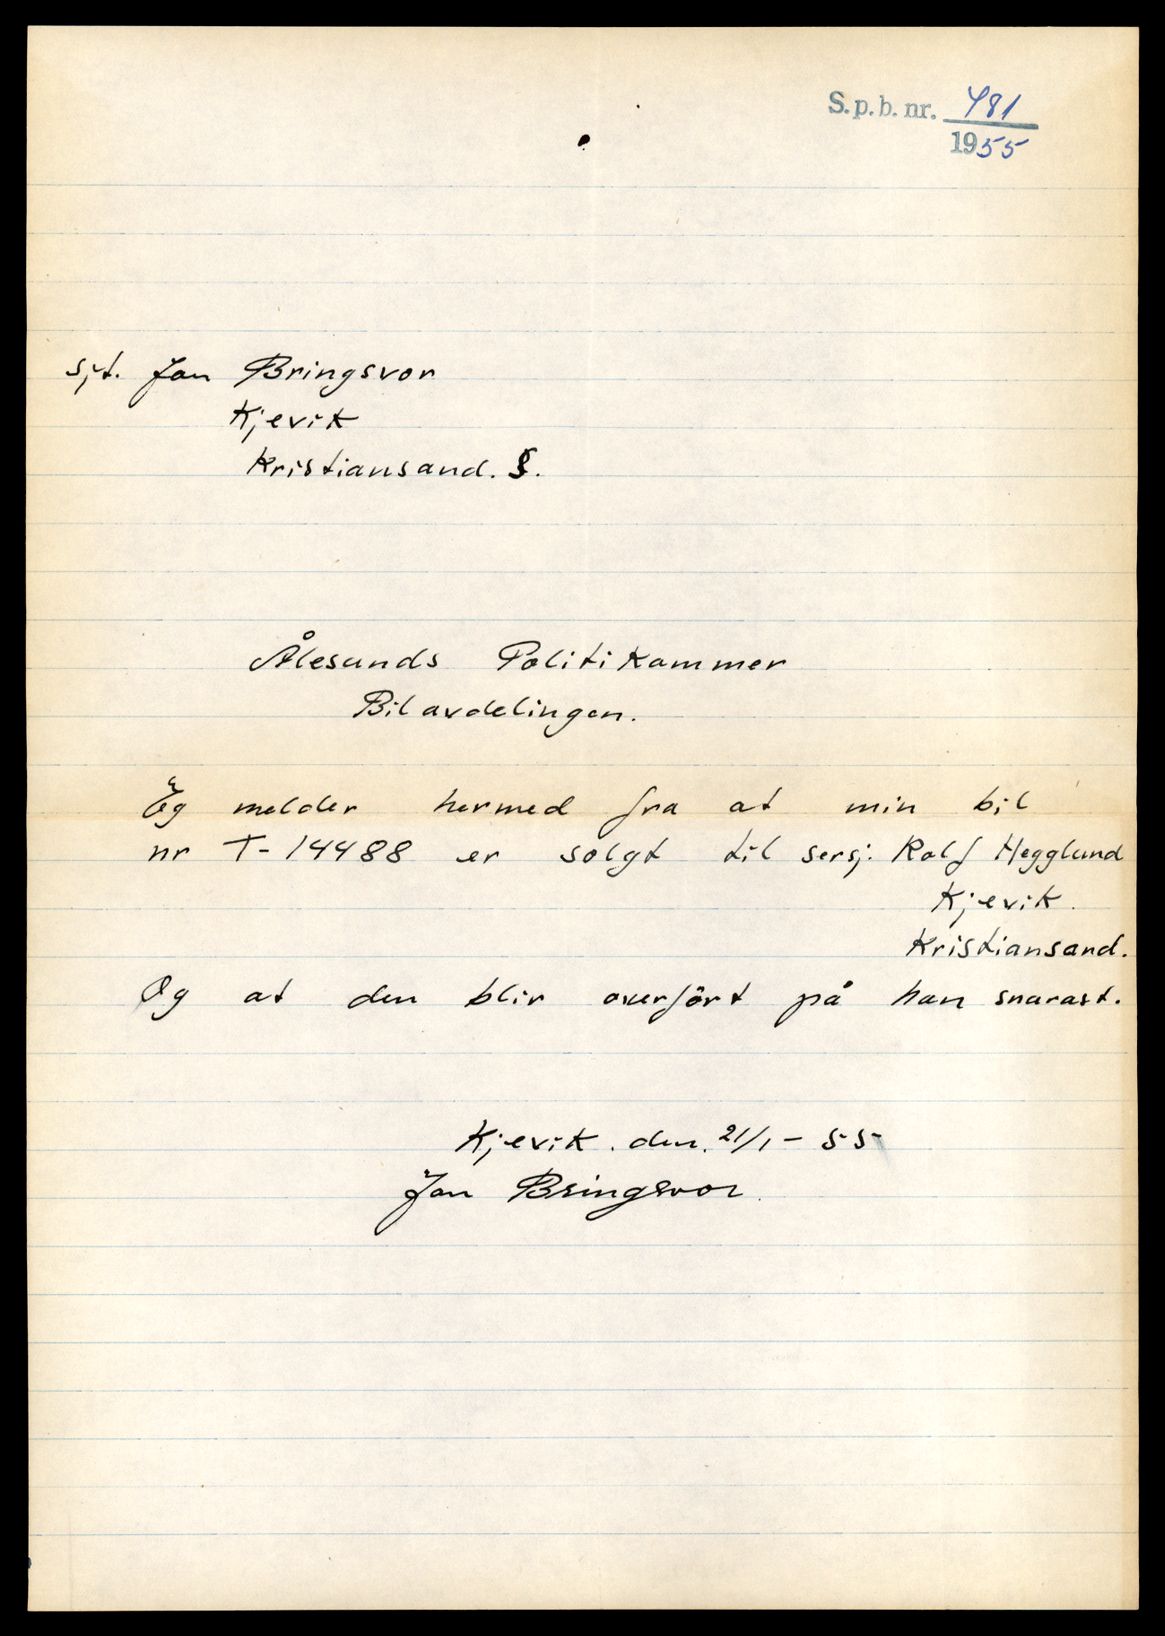 S.p.b. nr. 481
1955
Sjt. Jan Bringsvor
Kjevik
Kristiansand. S.
Ålesunds Politikammer
Bilavdelingen.
Eg melder hermed fra at min bil
nr T-14488 er solgt til sersj. Rolf Hegglund
Kjevik.
Kristiansand.
Og at den blir overført på han snarast.
Kjevik. den. 21/1 - 55
Jan Bringsvor.